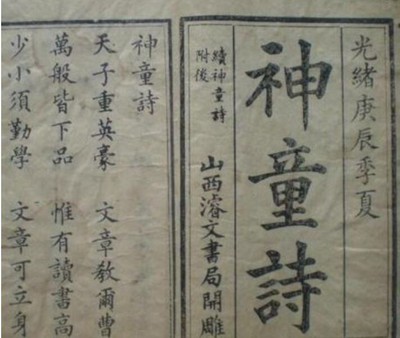 光緒庚辰季夏
神童詩
續神童詩
附後
山西濬文書局開雕
神童詩
天子重英豪　文章教爾曹
萬般皆下品　惟有讀書高
少小須勤學　文章可立身